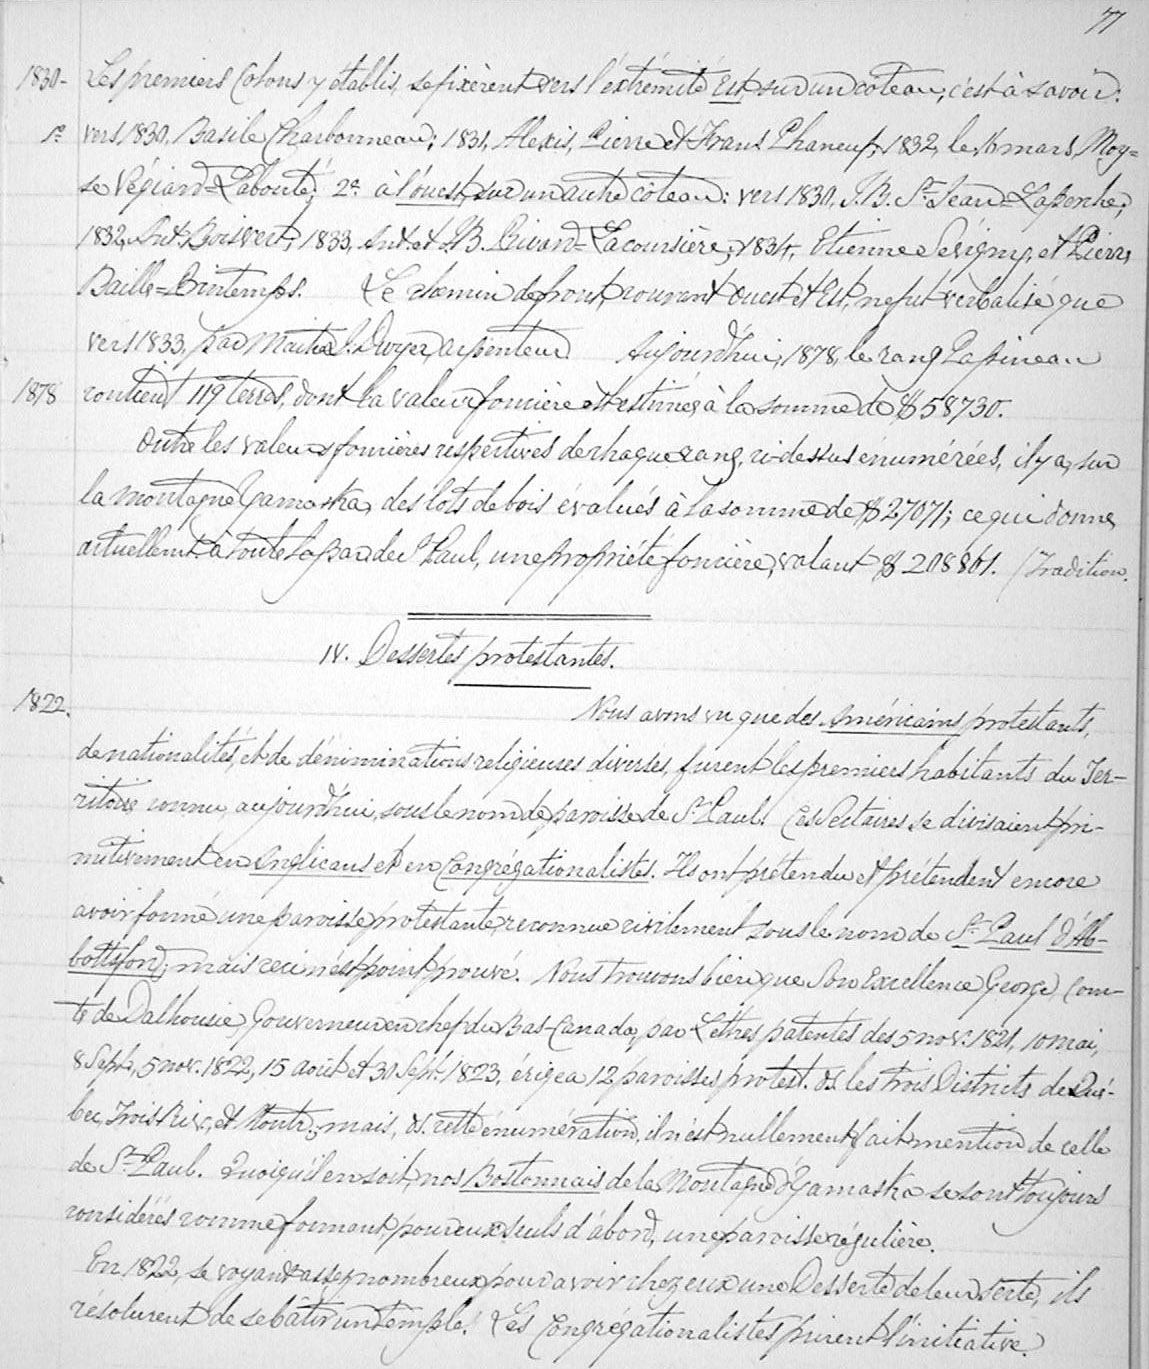 77
1830- Les premiers Colons y établis, se fixèrent vers l'éxtrémité Est, sur un côteau, c'est à savoir:
1º vers 1830, Basile Charbonneau; 1831, Alexis, Pierre et Frans Phaneuf; 1832, le 16 mars, Moy=
se Végiard=Labonté; 2º à l'ouest, sur un autre côteau: vers 1830, J.B. St Jean=Laperche;
1832, Ant. Boisvert; 1833, Ant. et J.B. Rivard=Lacoursière; 1834, Etienne Sevigny, et Pierre
Baille=Printemps. Le chemin de front, courant Ouest et Est, ne fut verbalisé que
vers 1833, par Maître J. Dwyer, arpenteur. Aujourd'hui, 1878, le rang Papineau
1878 contient 119 terres, dont la valeur foncière est estimée à la somme de $58730.
Outre les valeurs foncières respectives de chaque rang, ci-dessus enumérées, il y a, sur
la montagne Yamaska, des lots de bois évalués à la somme de $27071; ce qui donne,
actuellemt, à toute la par. de St Paul, une propriété foncière, valant $208861. (Tradition.
IV. Dessertes protestantes.
1822. Nous avons vu que des Américains protestants,
de nationalités, et de déniminations religieuses diverses, furent les premiers habitants du Ter-
ritoire connu, aujourd'hui, sous le nom de paroisse de St Paul. Ces Sectaires se divisaient pri-
mitivement en Anglicans et en Congrégationalistes. Ils ont prétendu et prétendent encore
avoir formé une paroisse protestante, reconnue civilement sous le nom de St Paul d'Ab-
bottsford; mais ceci n'est point prouvé. Nous trouvons bien que Son Excellence George, Com-
te de Dalhousie, Gouverneur en chef du Bas-Canada, par Lettres patentes des 5 nov. 1821, 10 mai,
8 Sept., 5 nov. 1822, 15 août et 30 Sept. 1823, érigea 12 paroisses protest. ds. les trois Districts de Qué-
bec, Trois Riv., et Montr.; mais, ds. cette énumération, il n'est nullement fait mention de celle
de St Paul. Quoiqu'il en soit, nos Bostonnais de la Montagne d'Yamaska se sont toujours
considérés comme formant, pour eux seuls d'abord, une paroisse régulière.
En 1822, se voyant assez nombreux pour avoir chez eux une Desserte de leur secte, ils
résolurent de se bâtir un Temple. Les Congrégationalistes prirent l'initiative.